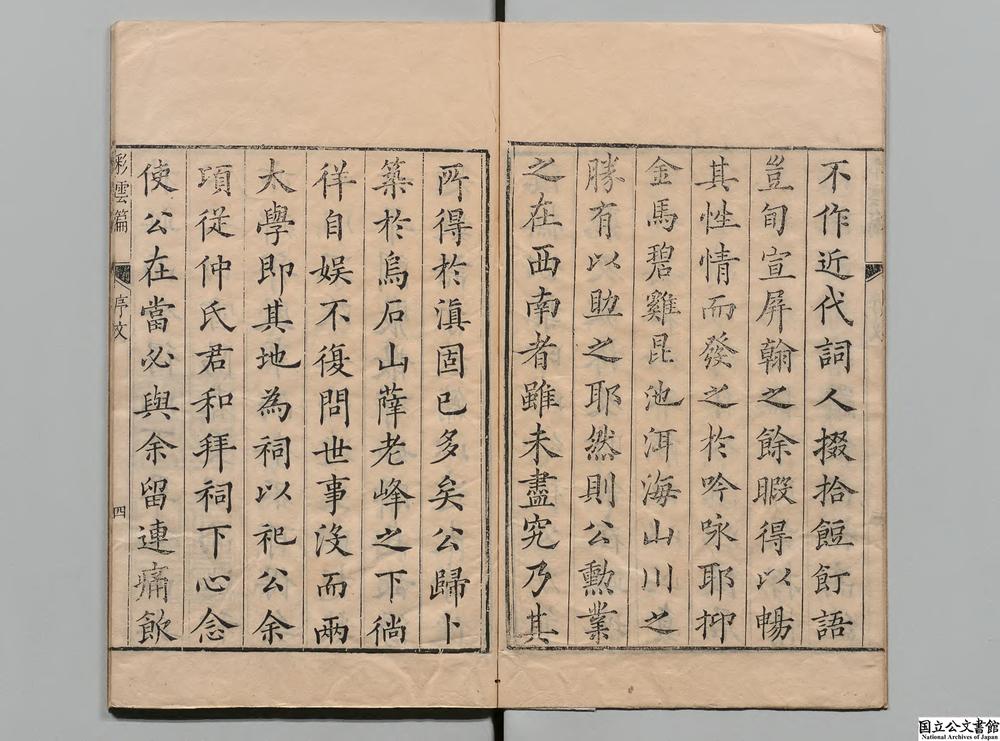 不作近代詞人掇拾飣餖語
豈旬宣屏翰之餘暇得以暢
其性情而發之於吟咏耶抑
金馬碧雞昆池洱海山川之
勝有以助之耶然則公勲業
之在西南者雖未盡究乃其
所得於滇固已多矣公歸卜
築於烏石山薩老峰之下徜
徉自娱不復問世事沒而兩
太學即其地為祠以祀公余
項從仲氏君和拜祠下心念
使公在當必與余留連痛飲
彩雲篇
序文
四
国立公文書館
National Archives of Japan